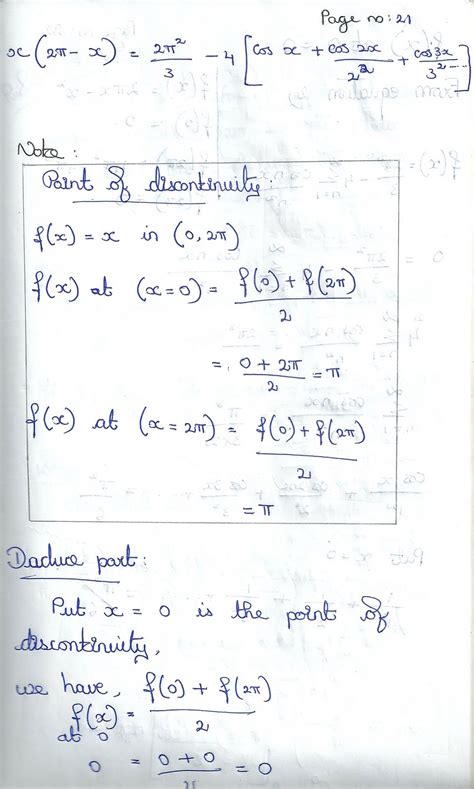 Page no: 21
x(2π - x) = 2π²/3 - 4 [cos x + cos 2x/2² + cos 3x/3² - - -]
Note :
Point of discontinuity:
f(x) = x in (0, 2π)
f(x) at (x=0) = f(0) + f(2π)/2
= 0 + 2π/2 = π
f(x) at (x = 2π) = f(0) + f(2π)/2
= π
Daduce part:
Put x = 0 is the point of
discontinuity,
we have, f(0) + f(2π)
f(x) = 2
at 0
0 = 0 + 0/2 = 0